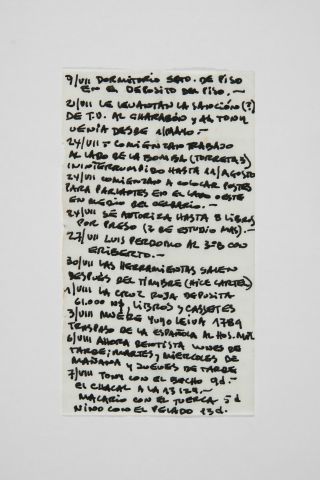 9/VII DORMITORIO SETO. DE PISO
EN EL DEPOSITO DEL PISO.—
21/VII LE LEVANTAN LA SANCIÓN (?)
DE T.V. AL CHARABÓN y AL TONY
VENÍA DESDE 1/MAYO.—
24/VII COMIENZAN TRABAJO
AL LADO DE LA BOMBA (TORRETA 3)
ININTERRUMPIDO HASTA 11/AGOSTO
24/VII COMIENZAN A COLOCAR POSTES
PARA PARLANTES EN EL LADO OESTE
EN MEDIO DEL CELDARIO.—
24/VII SE AUTORIZA HASTA 8 LIBROS
POR PRESO (2 DE ESTUDIO MAS).—
27/VII LUIS PERDOMO AL 3ºB CON
ERIBERTO.—
30/VII LAS HERRAMIENTAS SALEN
DESPUÉS DEL TIMBRE (HICE CARTEL)
1/VIII LA CRUZ ROJA DEPOSITA
61.000 N$, LIBROS y CASSETES
3/VIII MUERE YUYO LEIVA 1789
TRASPASO DE LA ESPAÑOLA AL HOS. MIL
6/VIII AHORA DENTISTA LUNES DE
TARDE; MARTES y MIERCOLES DE
MAÑANA y JUEVES DE TARDE
7/VIII TONY CON EL BECHO 9d.—
EL CHACAL A LA 13 129.—
MACARIO CON EL TUERCA 5d
NINO CON EL PELADO 13d.